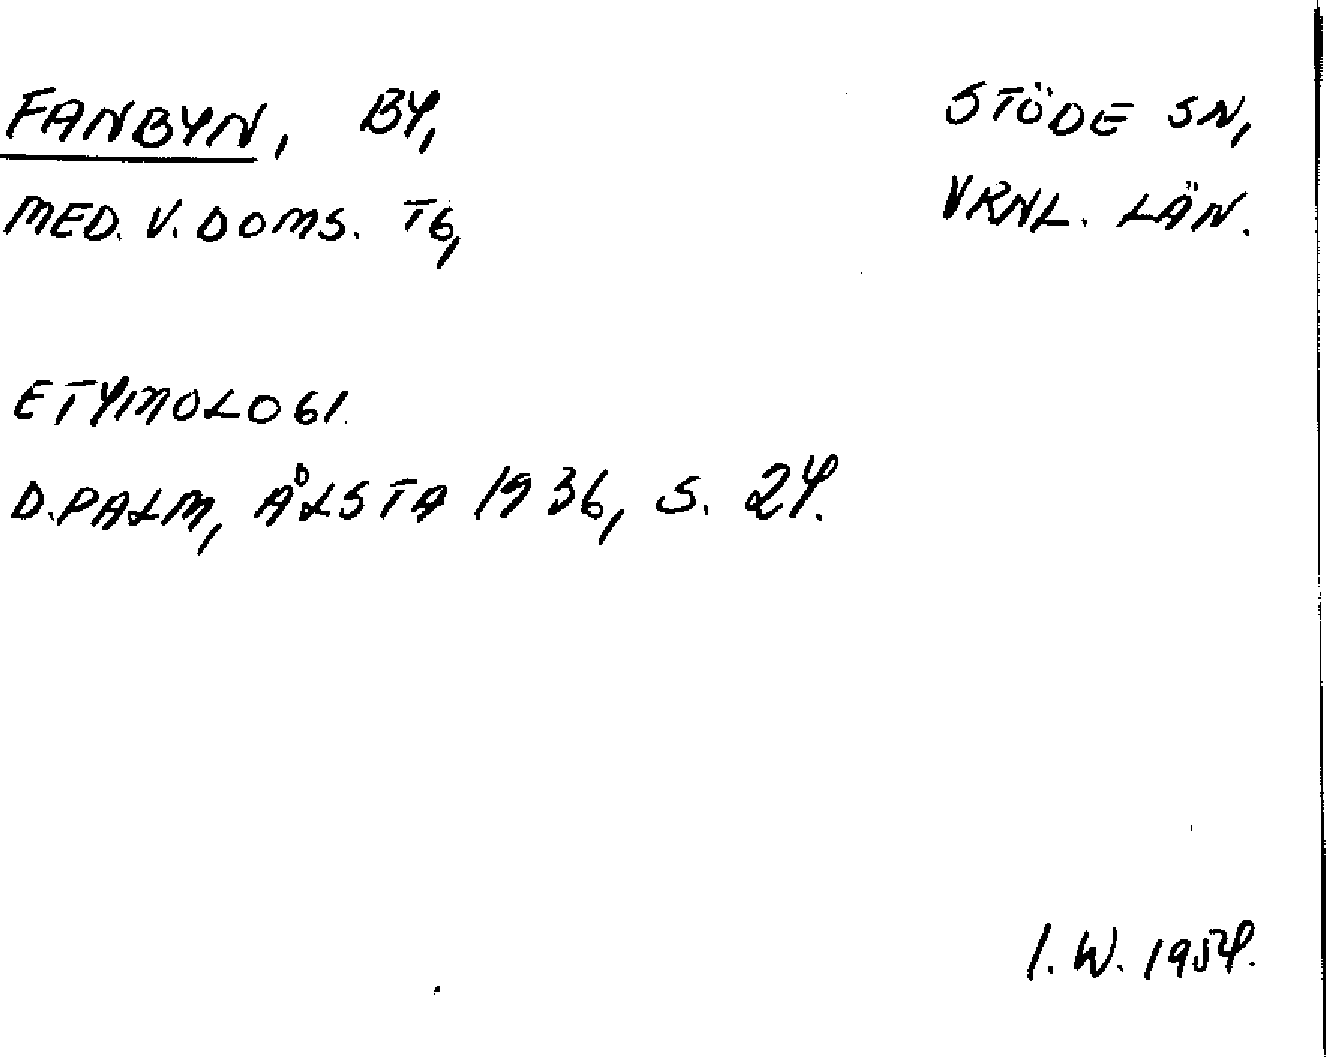 FANBYN, BY, STÖDE SN,
MED. V. DOMS. TG, VRNL. LÄN.
ETYMOLOGI.
D. PALM, ÅLSTA 1936, S. 24.
I. W. 1954.